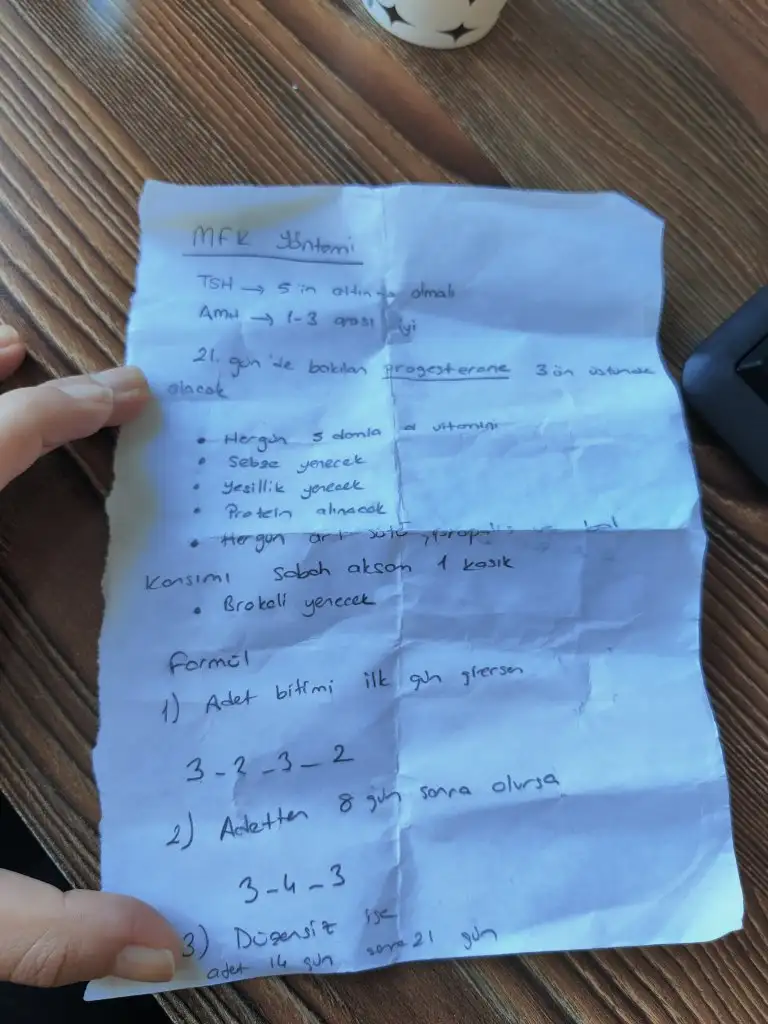 MFK Yöntemi
TSH → 5 in altında olmalı
AMH → 1-3 arası iyi
21. gün'de bakılan progesterone 3 ün üstünde
olacak
• Hergün 5 damla d vitamini
• Sebze yenecek
• Yeşillik yenecek
• Protein alınacak
• Hergün arı sütü, propolis ve bal
karışımı Sabah akşam 1 kaşık
• Brokoli yenecek
Formül
1) Adet bitimi ilk gün girersen
3-2-3-2
2) Adetten 8 gün sonra olursa
3-4-3
3) Düzensiz ise
adet 14 gün sonra 21 gün